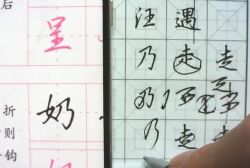 后
呈
奶
折
则
钩
汪 遇
乃 走 走
奶
乃 走 走